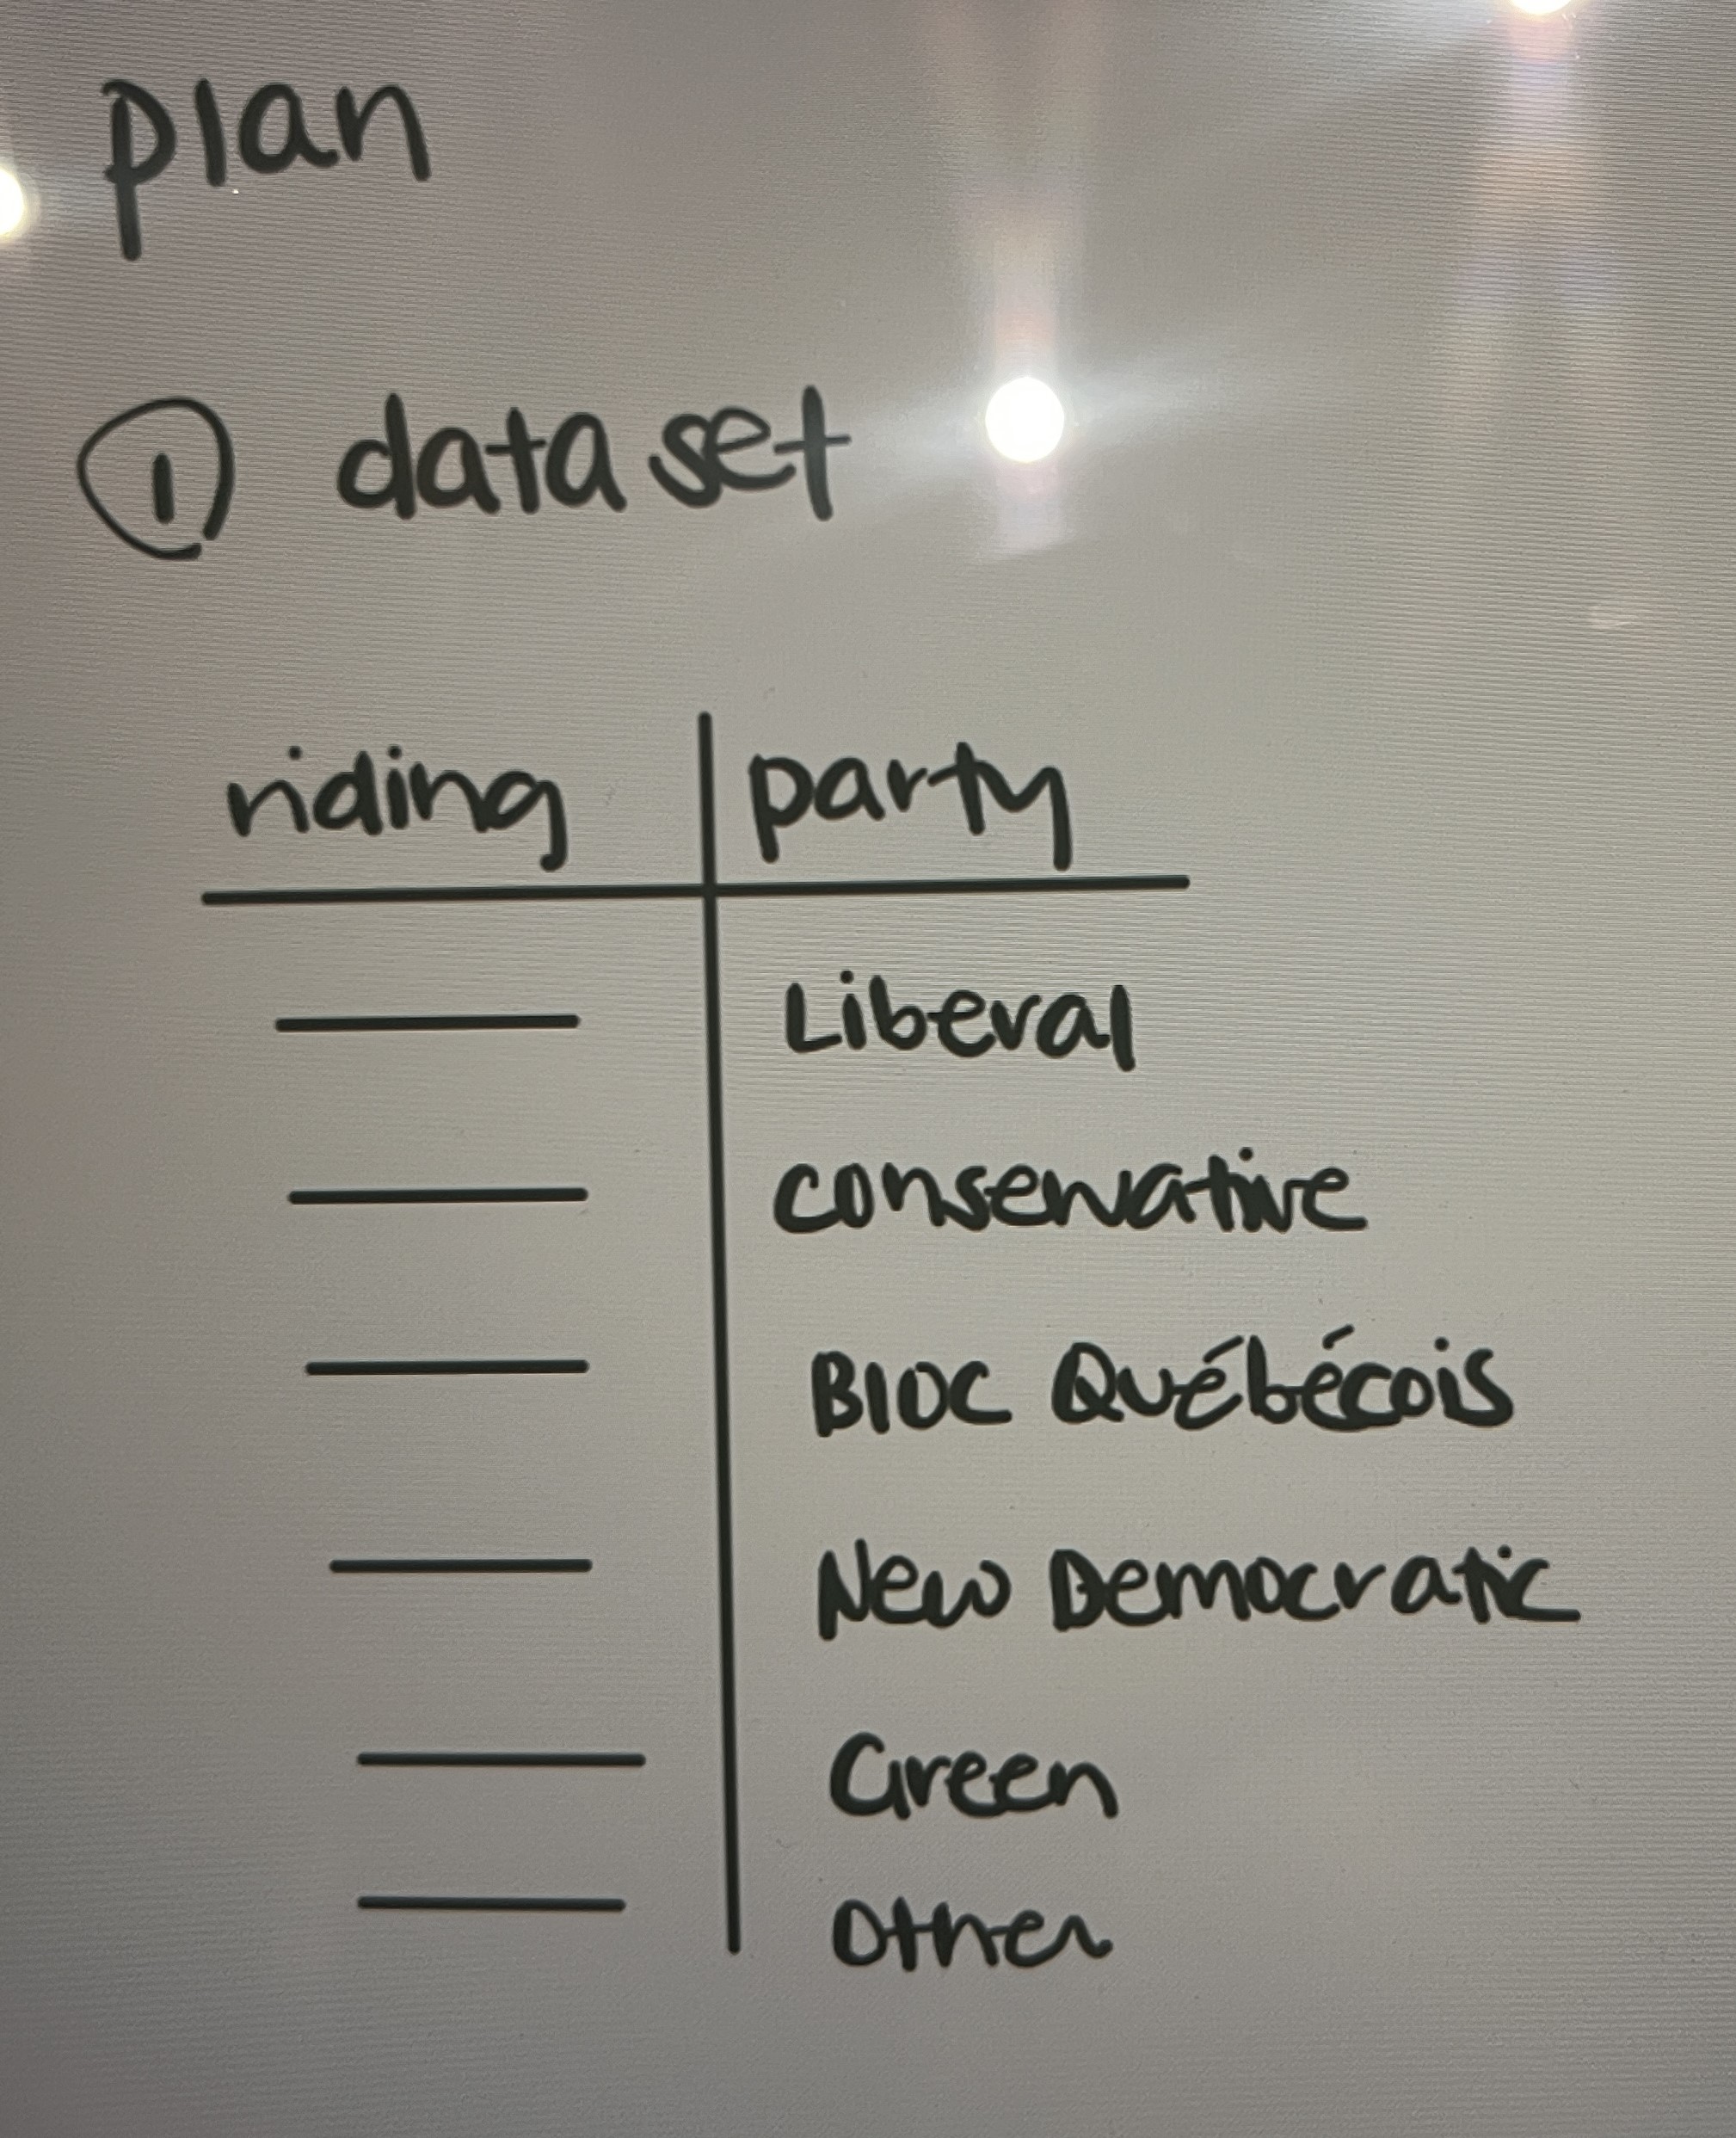 plan
① dataset
riding party
Liberal
conservative
Bloc Québécois
New Democratic
Green
Other